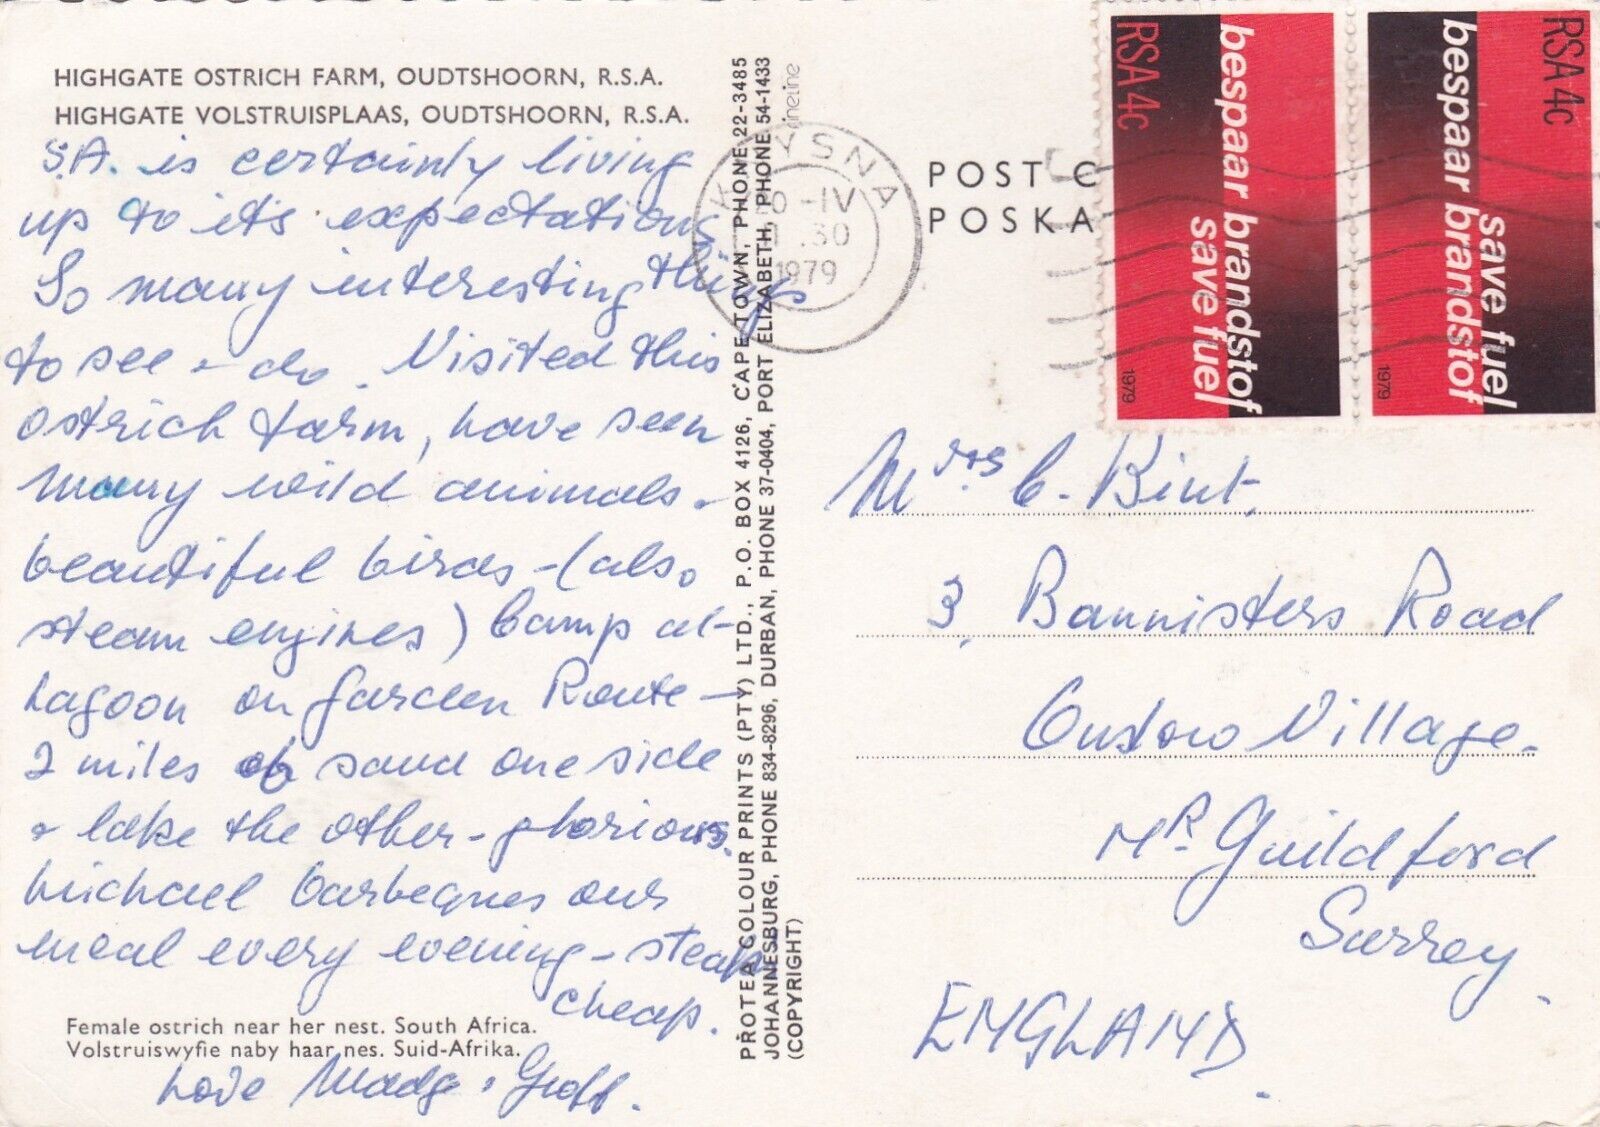 HIGHGATE OSTRICH FARM, OUDTSHOORN, R.S.A.
HIGHGATE VOLSTRUISPLAAS, OUDTSHOORN, R.S.A.
S.A. is certainly living
up to it's expectations
So many interesting things
to see + do. Visited this
ostrich farm, have seen
many wild animals.
beautiful birds - (also
steam engines) Camp at
Lagoon on Garden Route -
2 miles of sand one side
+ lake the other - glorious.
Michael barbeques our
meal every evening - steak
cheap.
Female ostrich near her nest. South Africa.
Volstruiswyfie naby haar nes. Suid-Afrika.
Love Madge + Geoff.
PROTEA COLOUR PRINTS (PTY) LTD., P.O. BOX 4126, CAPE TOWN, PHONE 22-3485
JOHANNESBURG, PHONE 834-8296, DURBAN, PHONE 37-0404, PORT ELIZABETH, PHONE 54-1433
(COPYRIGHT)
KNYSNA
-IV
1979
POST C
POSKA
RSA 4c
bespaar brandstof
save fuel
1979
RSA 4c
bespaar brandstof
save fuel
1979
Mrs C. Bint.
3, Bannisters Road
Onslow Village.
Nr Guildford
Surrey.
ENGLAND.